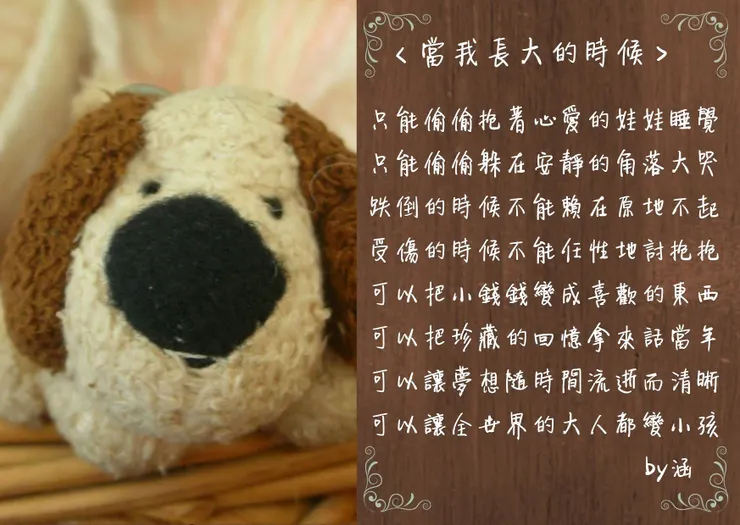 <當我長大的時候>
只能偷偷抱著心愛的娃娃睡覺
只能偷偷躲在安靜的角落大哭
跌倒的時候不能賴在原地不起
受傷的時候不能任性地討抱抱
可以把小錢錢變成喜歡的東西
可以把珍藏的回憶拿來話當年
可以讓夢想隨時間流逝而清晰
可以讓全世界的大人都變小孩
by涵